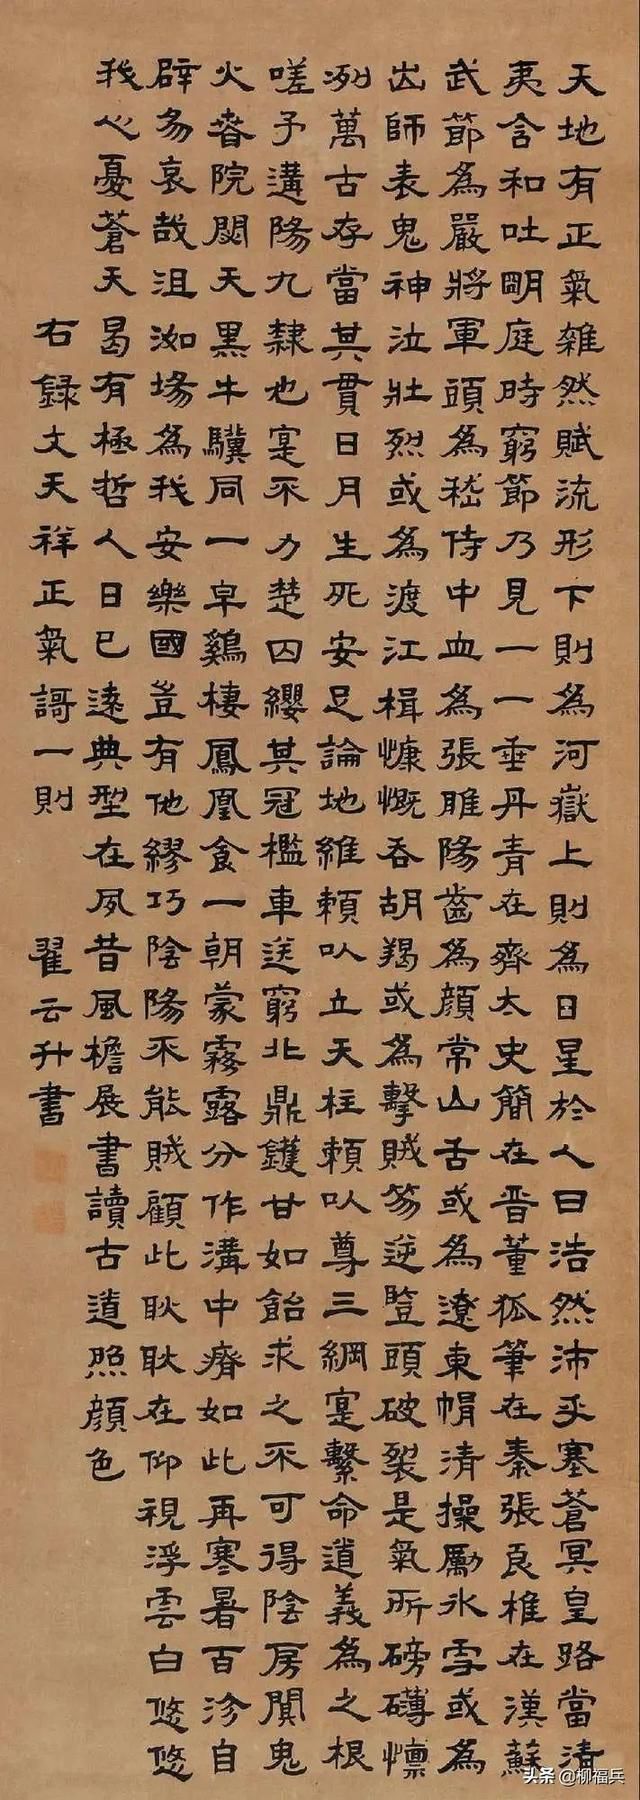 天地有正氣雜然賦流形下則為河嶽上則為日星於人曰浩然沛乎塞蒼冥皇路當清
夷含和吐朙庭時窮節乃見一一垂丹青在齊太史簡在晉董狐筆在秦張良椎在漢蘇
武節為嚴將軍頭為嵇侍中血為張睢陽齒為顏常山舌或為遼東帽清操勵冰雪或為
出師表鬼神泣壯烈或為渡江楫慷慨吞胡羯或為擊賊笏逆豎頭破裂是氣所磅礴懍
冽萬古存當其貫日月生死安足論地維賴以立天柱賴以尊三綱寔繫命道義為之根
嗟予遘陽九隸也寔不力楚囚纓其冠檻車送窮北鼎鑊甘如飴求之不可得陰房闃鬼
火春院閟天黑牛驥同一皁鷄棲鳳凰食一朝蒙霧露分作溝中瘠如此再寒暑百沴自
辟易哀哉沮洳場為我安樂國豈有他繆巧陰陽不能賊顧此耿耿在仰視浮雲白悠悠
我心憂蒼天曷有極哲人日已遠典型在夙昔風檐展書讀古道照顏色
右錄文天祥正氣謌一則 翟云升書
头条 @柳福兵